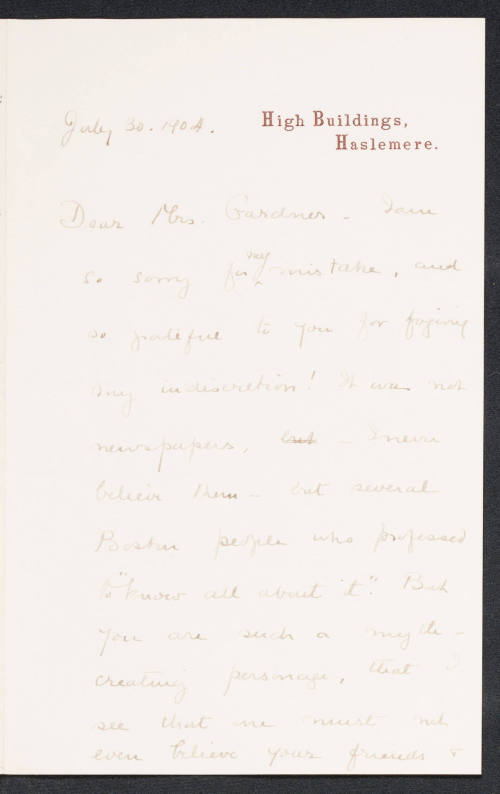 July 30. 1904.
High Buildings,
Haslemere.
Dear Mrs. Gardner - I am
so sorry for my mistake, and
so grateful to you for forgiving
my indiscretion! It was not
newspapers, but - I never
believe them - but several
Boston people who professed
to "know all about it". But
you are such a myth-
creating personage, that I
see that one must not
even believe your friends &